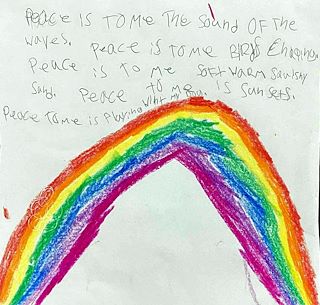 Peace is to me the sound of the
waves. Peace is to me
Peace is to me soft warm
sand. Peace to me is sunsets.
Peace to me is Playing